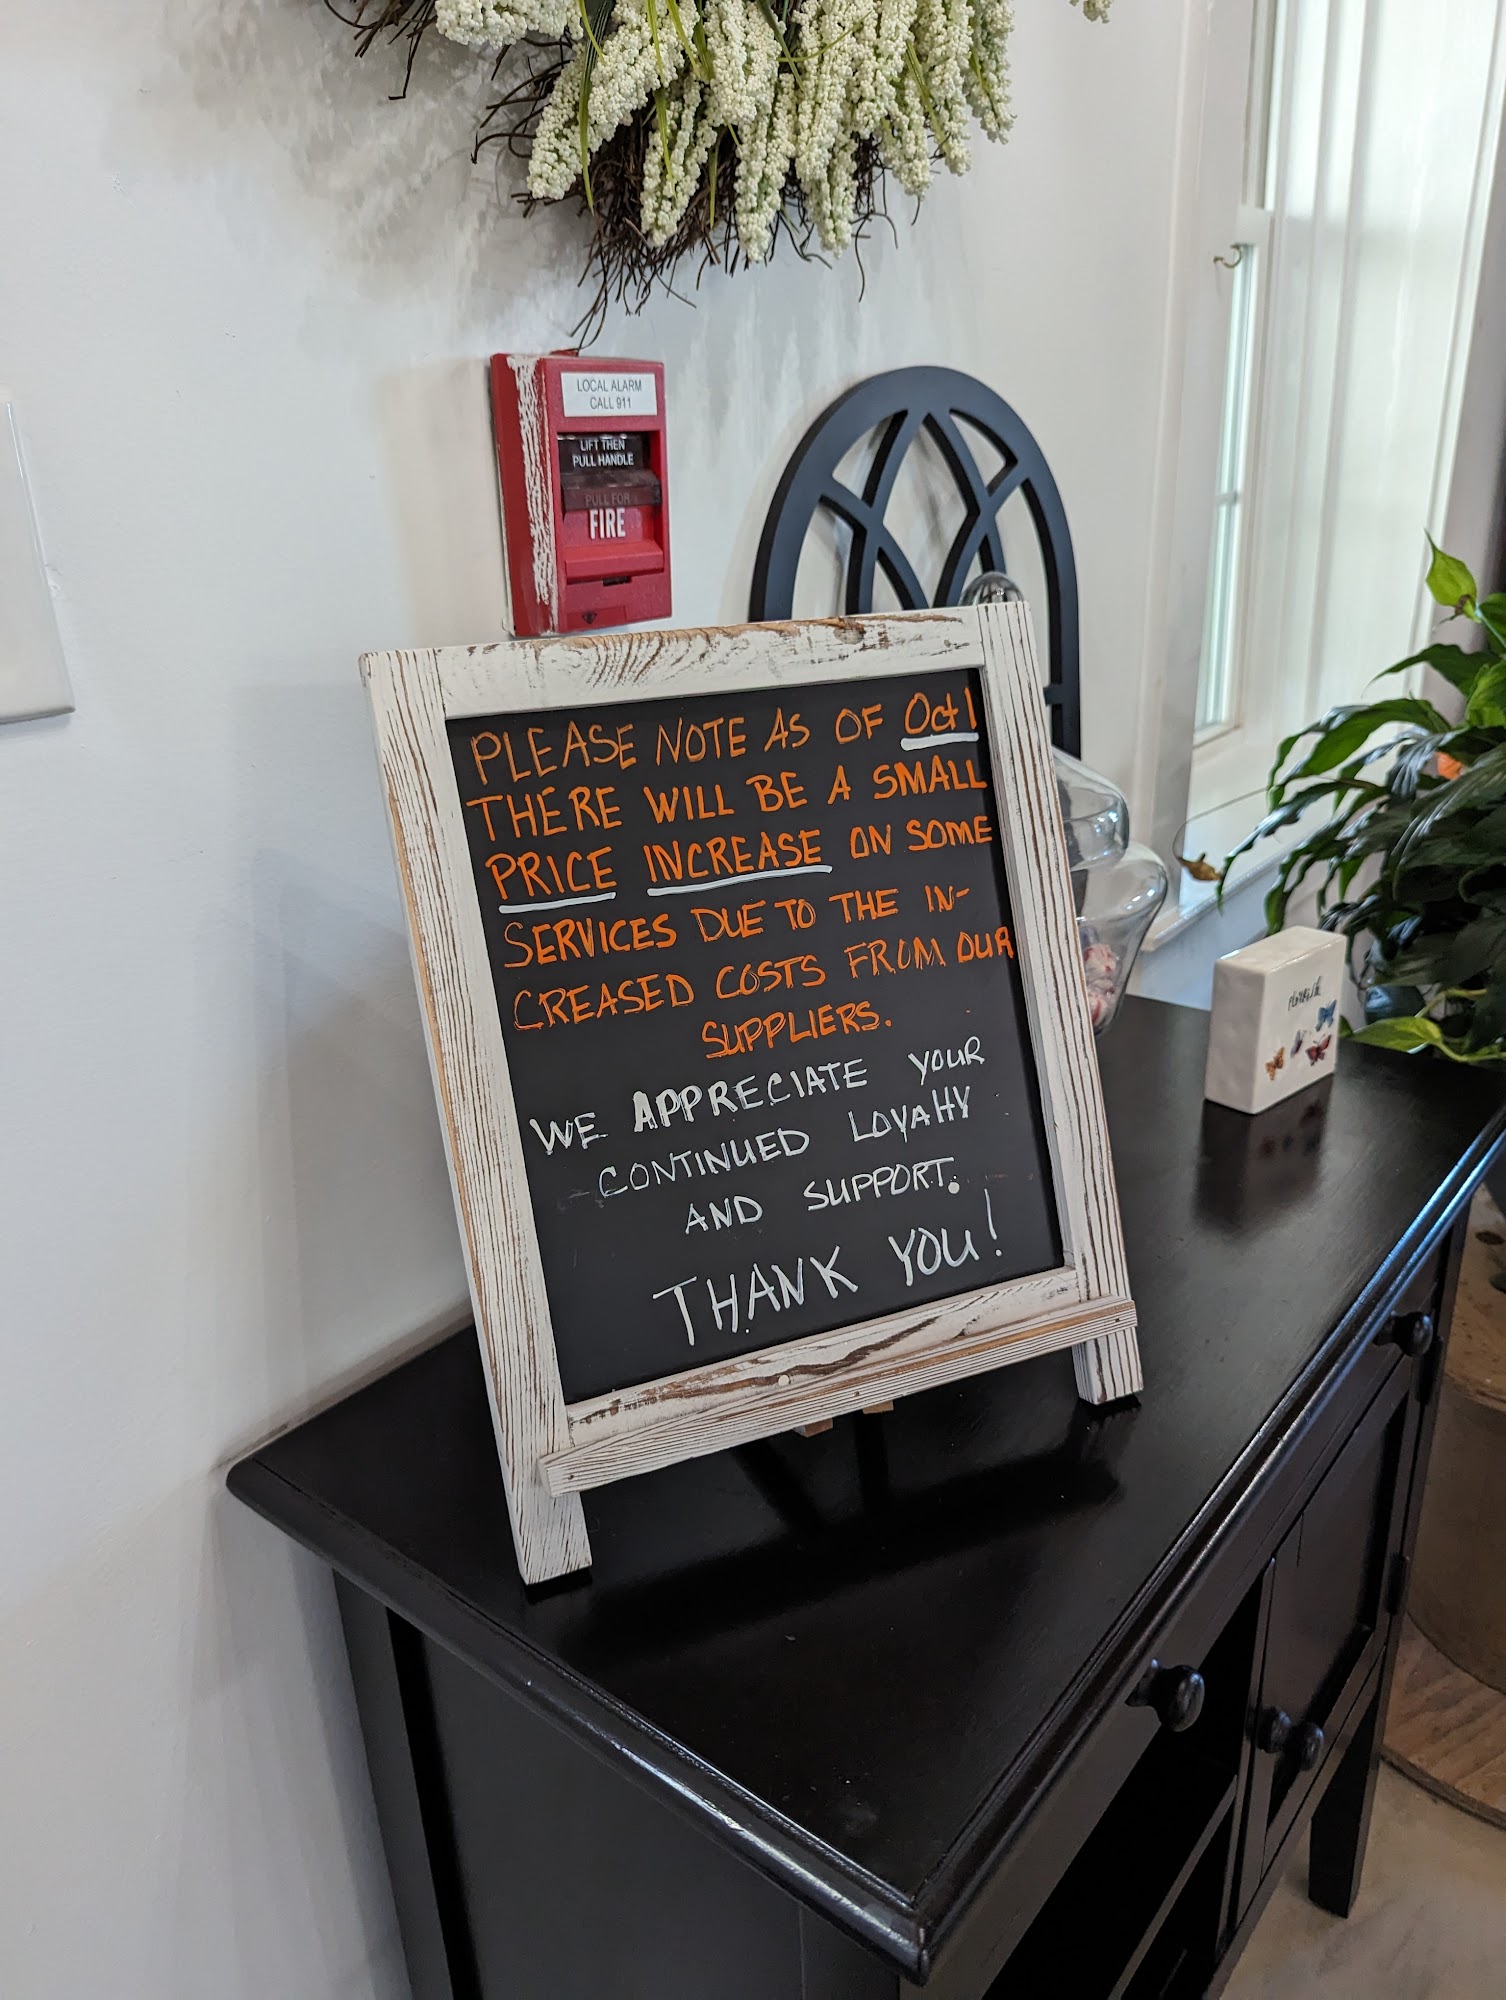 LOCAL ALARM
CALL 911
LIFT THEN
PULL HANDLE
PULL FOR
FIRE
PLEASE NOTE AS OF Oct 1
THERE WILL BE A SMALL
PRICE INCREASE ON SOME
SERVICES DUE TO THE IN-
CREASED COSTS FROM OUR
SUPPLIERS.
WE APPRECIATE YOUR
CONTINUED LOYAltY
AND SUPPORT.
THANK YOU!